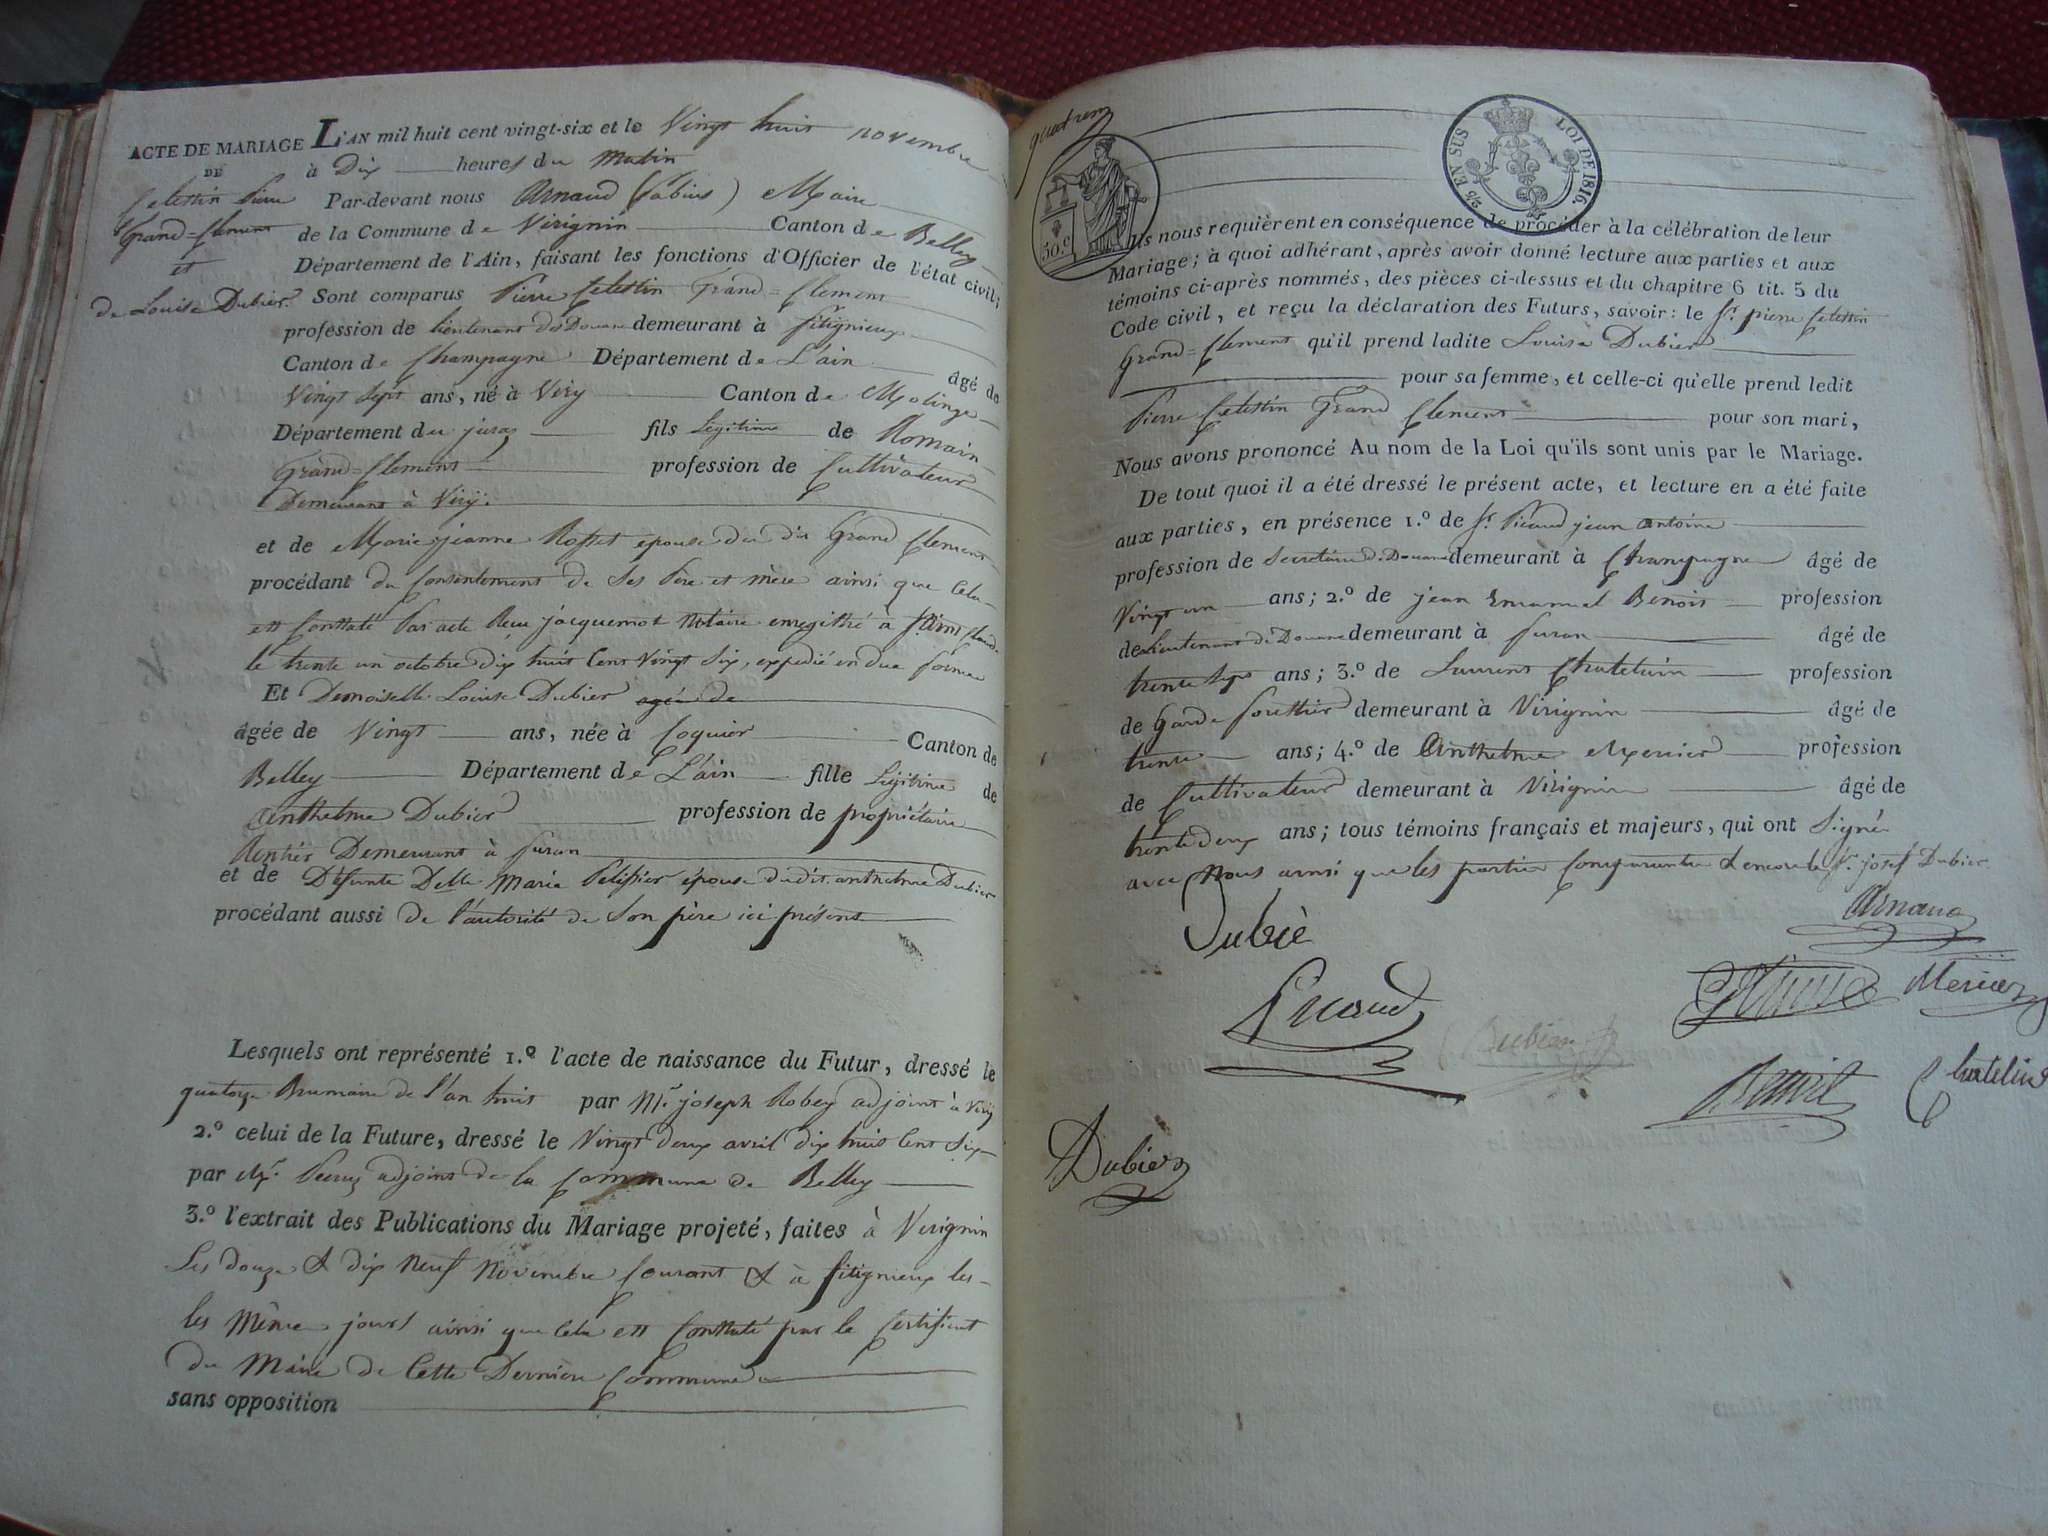 ACTE DE MARIAGE
DE
Celestin Pierre
Grand=Clement
et
de Louise Dubier
L'AN mil huit cent vingt-six et le Vingt huit novembre
à Dix heures du Matin
Par-devant nous Arnaud (fabius) Maire
de la Commune de Virignin Canton de Belley
Département de l'Ain, faisant les fonctions d'Officier de l'état civil;
Sont comparus Pierre Celestin Grand=Clement
profession de lieutenant des Douane demeurant à fitignieux
Canton de Champagne Département de L'ain âgé de
Vingt Sept ans, né à Viry Canton de Molinge
Département du jura fils Legitime de Romain
Grand=Clement profession de Cultivateur
Demeurant à Viry.
et de Marie jeanne Rosset epouse du dit Grand Clement
procédant du Consentement de Ses Père et mère ainsi que Cela
est Constaté Par acte Reçu jacquemot Notaire enregistré à St
le trente un octobre dix huit Cent Vingt Six, expedié en due forme
Et Demoiselle Louise Dubier agée de
âgée de Vingt ans, née à Coquier Canton de
Belley Département de L'ain fille Légitime de
Anthelme Dubier profession de propriétaire
Rentier Demeurant à furan
et de Défunte Delle Maria Pelissier épouse dudit anthelme Dubier
procédant aussi de l'autorité de Son père ici présent
Lesquels ont représenté 1.º l'acte de naissance du Futur, dressé le
quatorze Brumaire de l'an huit par Mr. joseph Robey adjoint à Viry
2.º celui de la Future, dressé le Vingt deux avril dix huit Cent Six
par Mr. adjoint de la Commune de Belley
3.º l'extrait des Publications du Mariage projeté, faites à Virignin
Les douze & dix Neuf Novembre Courant & à fitignieux les
les Même jours ainsi que Cela est Constaté par le Certificat
du Maire de Cette Dernière Commune
sans opposition
50.c
EN SUS LOI DE 1816.
Ils nous requièrent en conséquence de procéder à la célébration de leur
Mariage; à quoi adhérant, après avoir donné lecture aux parties et aux
témoins ci-après nommés, des pièces ci-dessus et du chapitre 6 tit. 5 du
Code civil, et reçu la déclaration des Futurs, savoir: le Sr. pierre Celestin
Grand=Clement qu'il prend ladite Louise Dubier
pour sa femme, et celle-ci qu'elle prend ledit
Pierre Celestin Grand Clement pour son mari,
Nous avons prononcé Au nom de la Loi qu'ils sont unis par le Mariage.
De tout quoi il a été dressé le présent acte, et lecture en a été faite
aux parties, en présence 1.º de Sr. Picaud jean antoine
profession de Secrétaire d. Douane demeurant à Champagne âgé de
Vingt un ans; 2.º de jean Emanuel Benoit profession
de lieutenant de Douane demeurant à furan âgé de
trente Sept ans; 3.º de Laurent Chatelain profession
de Garde forestier demeurant à Virignin âgé de
trente ans; 4.º de Anthelme Mercier profession
de Cultivateur demeurant à Virignin âgé de
trente deux ans; tous témoins français et majeurs, qui ont Signé
avec Nous ainsi que les parties Comparantes & encore le Sr. josef Dubier
Arnaud
Dubié
Picaud
Mercier
Dubier
Benoit
Chatelain
Dubier